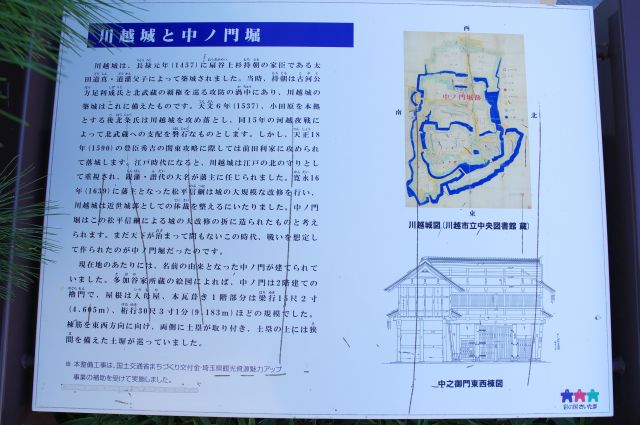 川越城と中ノ門堀
川越城は、長禄元年(1457)に扇谷上杉持朝の家臣である太
田道真・道灌父子によって築城されました。当時、持朝は古河公
方足利成氏と北武蔵の覇権を巡る攻防の渦中にあり、川越城の
築城はこれに備えたものです。天文6年(1537)、小田原を本拠
とする後北条氏は川越城を攻め落とし、同15年の河越夜戦に
よって北武蔵への支配を磐石なものとします。しかし、天正18
年(1590)の豊臣秀吉の関東攻略に際しては前田利家に攻められ
て落城します。江戸時代になると、川越城は江戸の北の守りとし
て重視され、親藩・譜代の大名が藩主に任じられました。寛永16
年(1639)に藩主となった松平信綱は城の大規模な改修を行い、
川越城は近世城郭としての体裁を整えるにいたりました。中ノ門
堀はこの松平信綱による城の大改修の折に造られたものと考え
られます。まだ天下が治まって間もないこの時代、戦いを想定し
て作られたのが中ノ門堀だったのです。
現在地のあたりには、名前の由来となった中ノ門が建てられて
いました。多加谷家所蔵の絵図によれば、中ノ門は2階建ての
櫓門で、屋根は入母屋、本瓦葺き1階部分は梁行15尺2寸
(4.605m)、桁行30尺3寸1分(9.183m)ほどの規模でした。
棟筋を東西方向に向け、両側に土塁が取り付き、土塁の上には狭
間を備えた土塀が巡っていました。
※ 本整備工事は、国土交通省まちづくり交付金・埼玉県観光資源魅力アップ
事業の補助を受けて実施しました。
西
中ノ門堀跡
南
北
東
川越城図(川越市立中央図書館 蔵)
中之御門東西棟図
彩の国さいたま